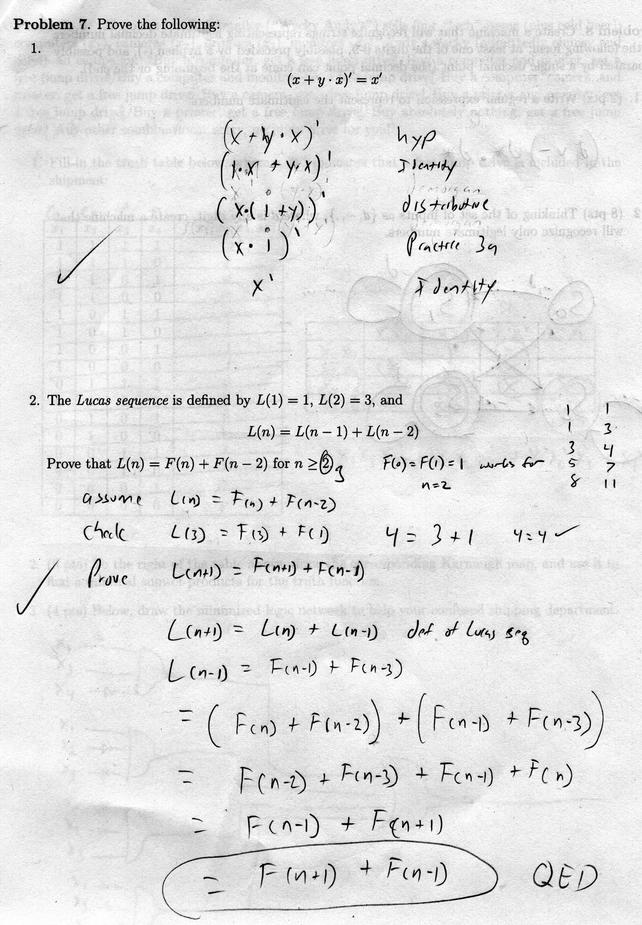 Problem 7. Prove the following:
1.
(x + y · x)' = x'
(x + y · x)' hyp
(1·x + y·x)' Identity
demorgan
(x·(1+y))' distributive
(x · 1)' Practice 3a
x' Identity
2. The Lucas sequence is defined by L(1) = 1, L(2) = 3, and
L(n) = L(n − 1) + L(n − 2)
Prove that L(n) = F(n) + F(n − 2) for n ≥ 2 3 F(0) = F(1) = 1 works for
n=2
1 1
1 3
3 4
5 7
8 11
assume L(n) = F(n) + F(n-2)
Check L(3) = F(3) + F(1) 4 = 3 + 1 4=4 ✓
Prove L(n+1) = F(n+1) + F(n-1)
L(n+1) = L(n) + L(n-1) def. of Lucas seq
L(n-1) = F(n-1) + F(n-3)
= (F(n) + F(n-2)) + (F(n-1) + F(n-3))
= F(n-2) + F(n-3) + F(n-1) + F(n)
= F(n-1) + F(n+1)
= F(n+1) + F(n-1) QED